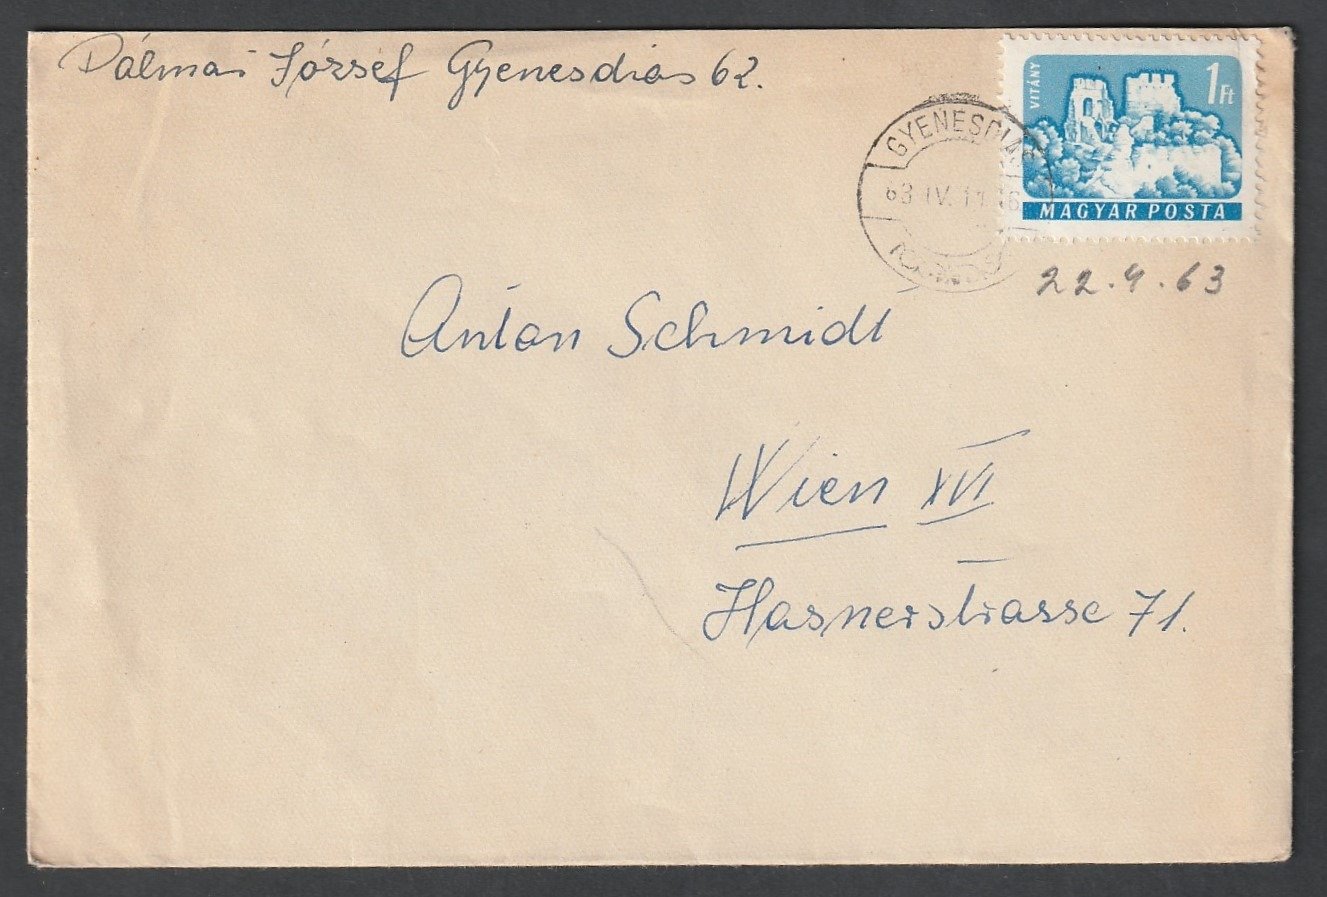 Pálmai József Gyenesdiás 62.
VITÁNY
1Ft
MAGYAR POSTA
GYENESDIÁS
63 IV. 11 16
22.4.63
Anton Schmidt
Wien XVI
Hasnerstrasse 71.